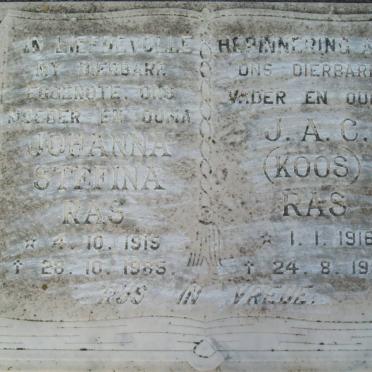 IN LIEFDEVOLLE
MY DIERBARE
EGGENOTE, ONS
MOEDER EN OUMA
JOHANNA
STEFINA
RAS
☆ 4. 10. 1919
✝ 28. 10. 1985.
HERINNERING A
ONS DIERBAR
VADER EN OU
J. A. C.
(KOOS)
RAS
☆ 1. 1. 1916
✝ 24. 8. 19
RUS IN VREDE.